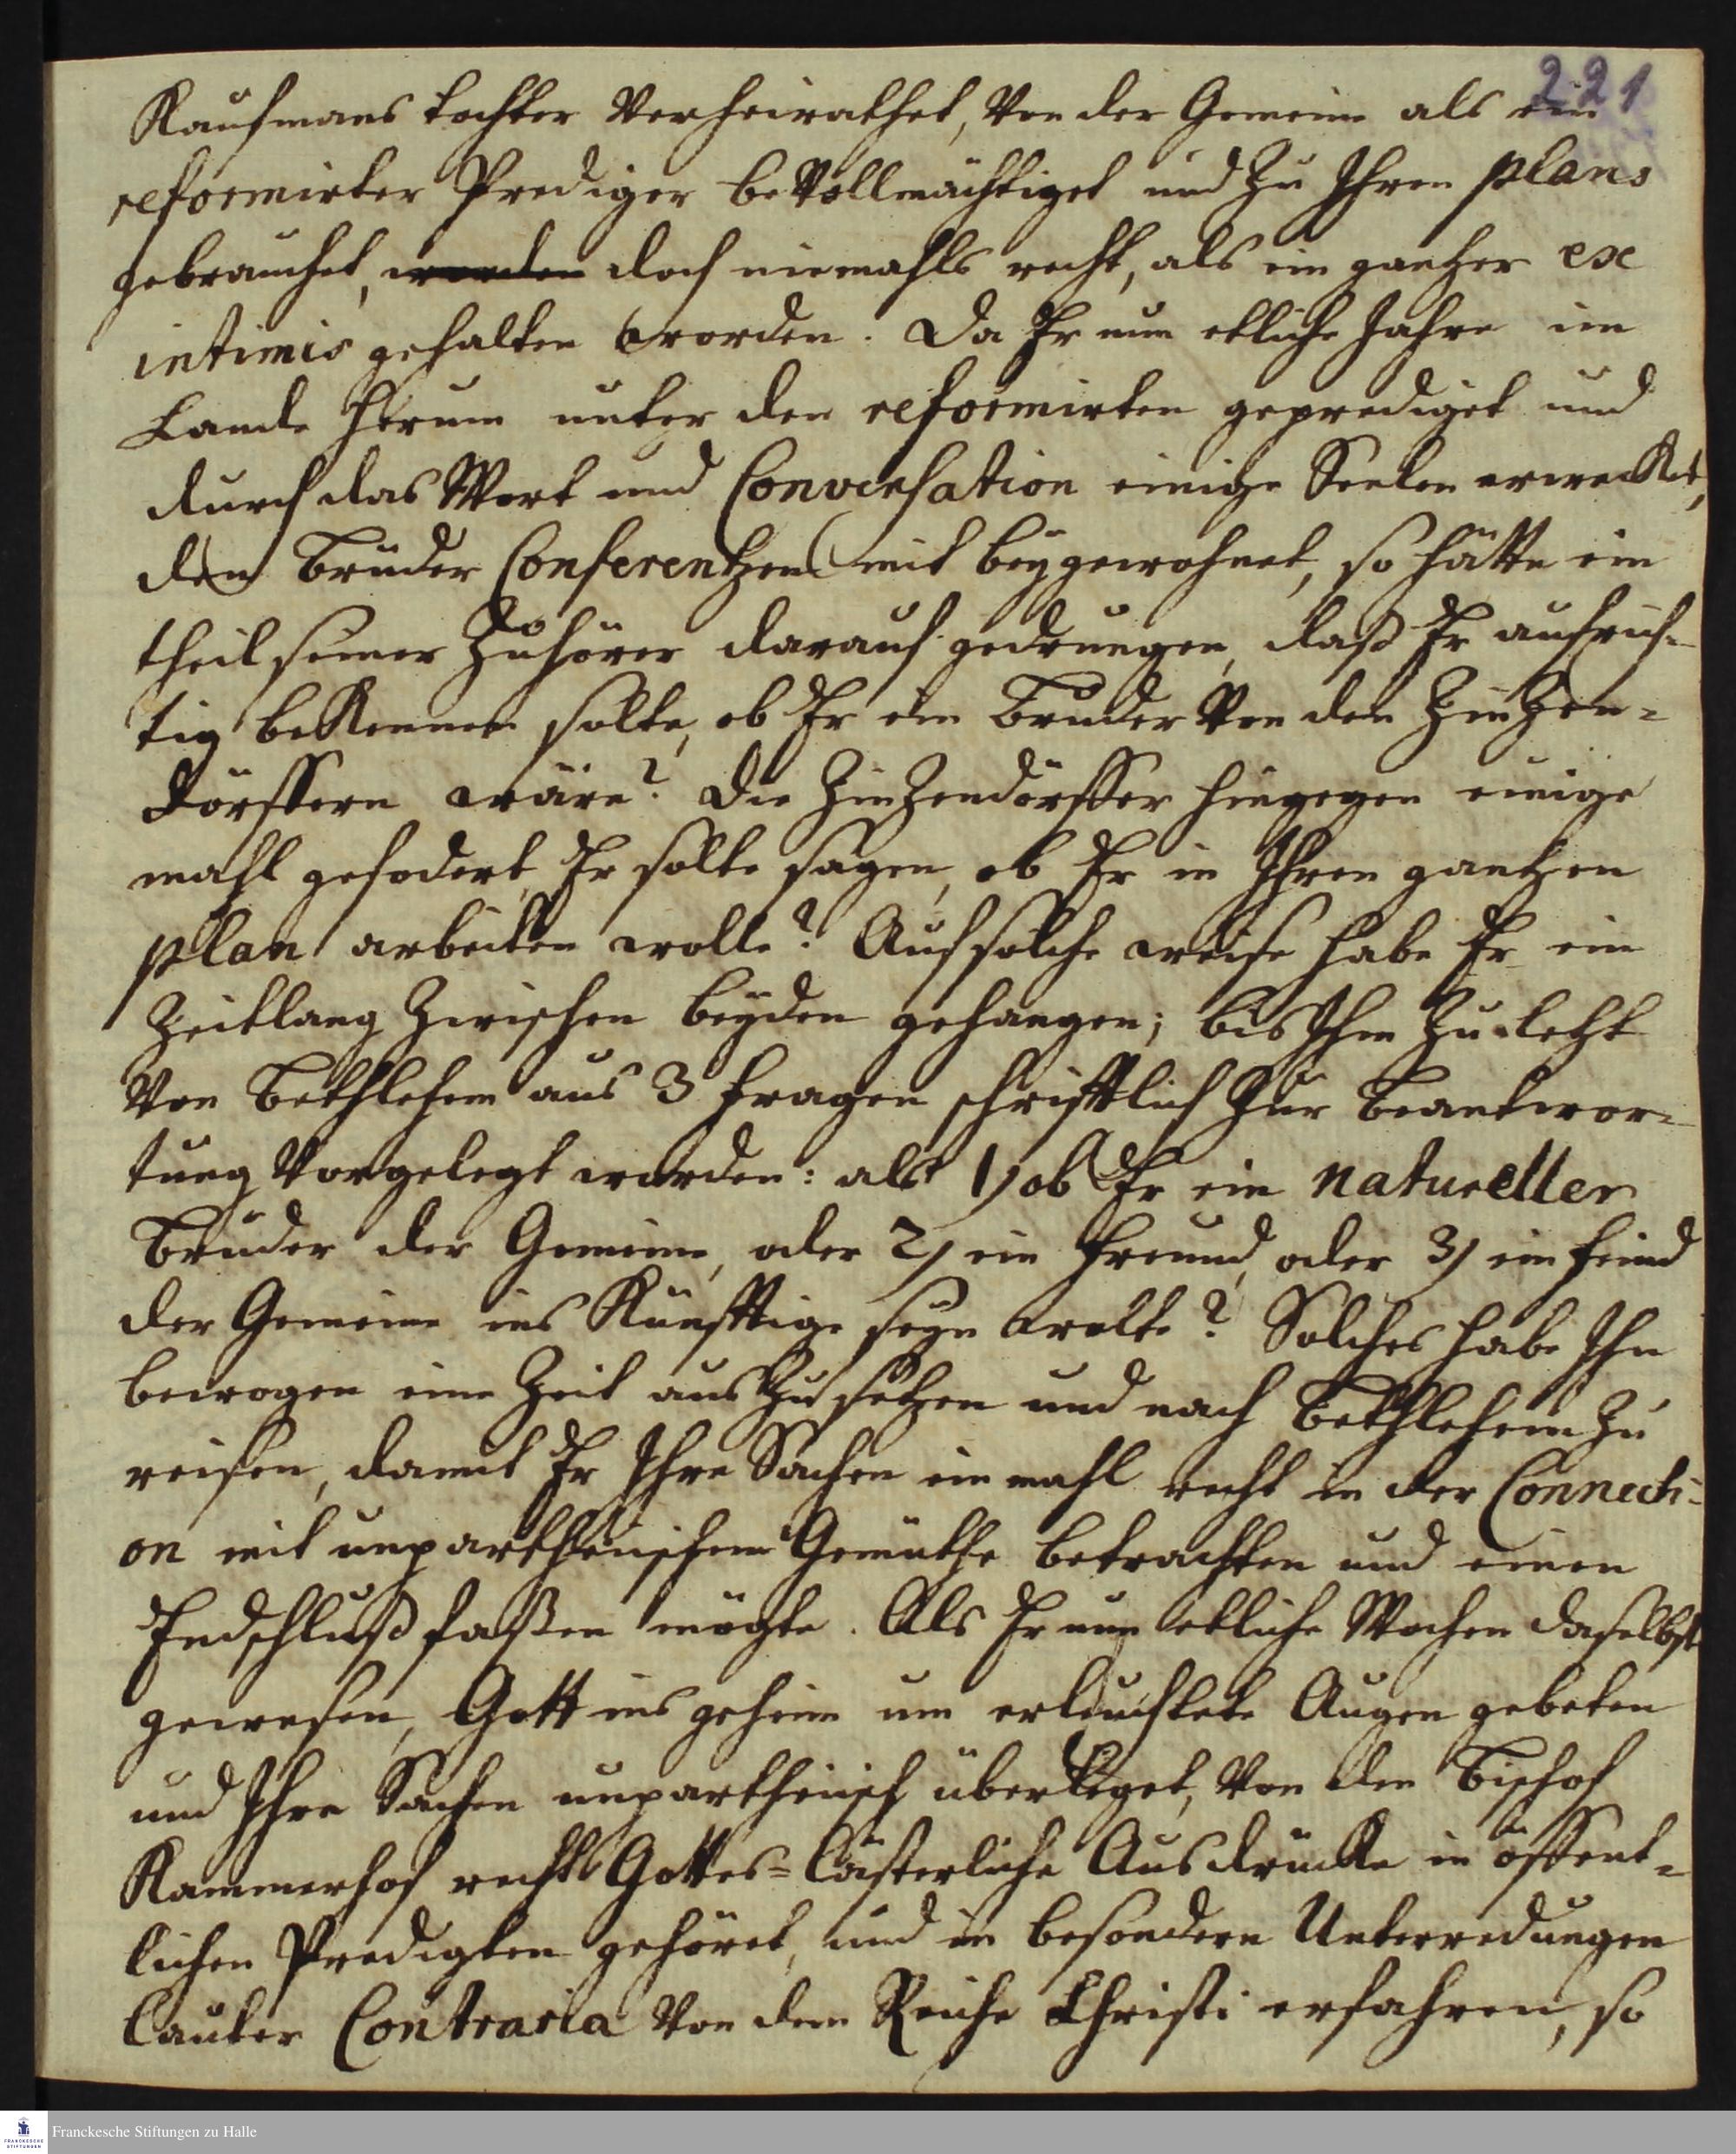 221
Kaufmans tochter verheirathet, von der Gemeine als ein
reformirter Prediger bevollmächtiget und zu Ihren plans
gebrauchet, worden doch niemahls recht, als ein gantzer ex
intimis gehalten worden. Da Er nun etliche Jahre im
Lande herum unter den reformirten geprediget und
durch das Wort und Conversation einige Seelen erwecket,
den Brüder Conferentzen mit beygewohnet, so hätte ein
theil seiner Zuhörer darauf gedrungen, daß Er aufrich-
tig bekennen solte, ob Er ein Bruder von den Zinzen-
dörffern wäre? Die Zinzendörffer hingegen einige
mahl gefodert, Er solte sagen, ob Er in Ihren gantzen
plan arbeiten wolle? Auf solche weise habe Er ein
Zeitlang zwischen beyden gehangen; bis Ihm zu letzt
von Bethlehem aus 3 fragen schrifftlich zur Beantwor-
tung vorgelegt worden: als 1) ob Er ein natureller
Bruder der Gemeine, oder 2) ein freund, oder 3) ein feind
der Gemeine ins Künfftige seyn wolte? Solches habe Ihn
bewogen eine Zeit auszusetzen und nach Bethlehem zu
reisen, damit Er Ihre Sachen ein mahl recht in der Connecti-
on mit unpartheiischem Gemüthe betrachten und einen
Endschluß faßen mögte. Als Er nun etliche Wochen daselbst
gewesen, Gott ins geheim um erleuchtete Augen gebeten
und Ihre Sachen unpartheiisch überleget, von dem Bischof
Kammerhof recht Gottes-lästerliche Ausdrücke in öffent-
lichen Predigten gehöret, und in besondern Unterredungen
lauter Contraria von dem Reiche Christi erfahren, so
Franckesche Stiftungen zu Halle